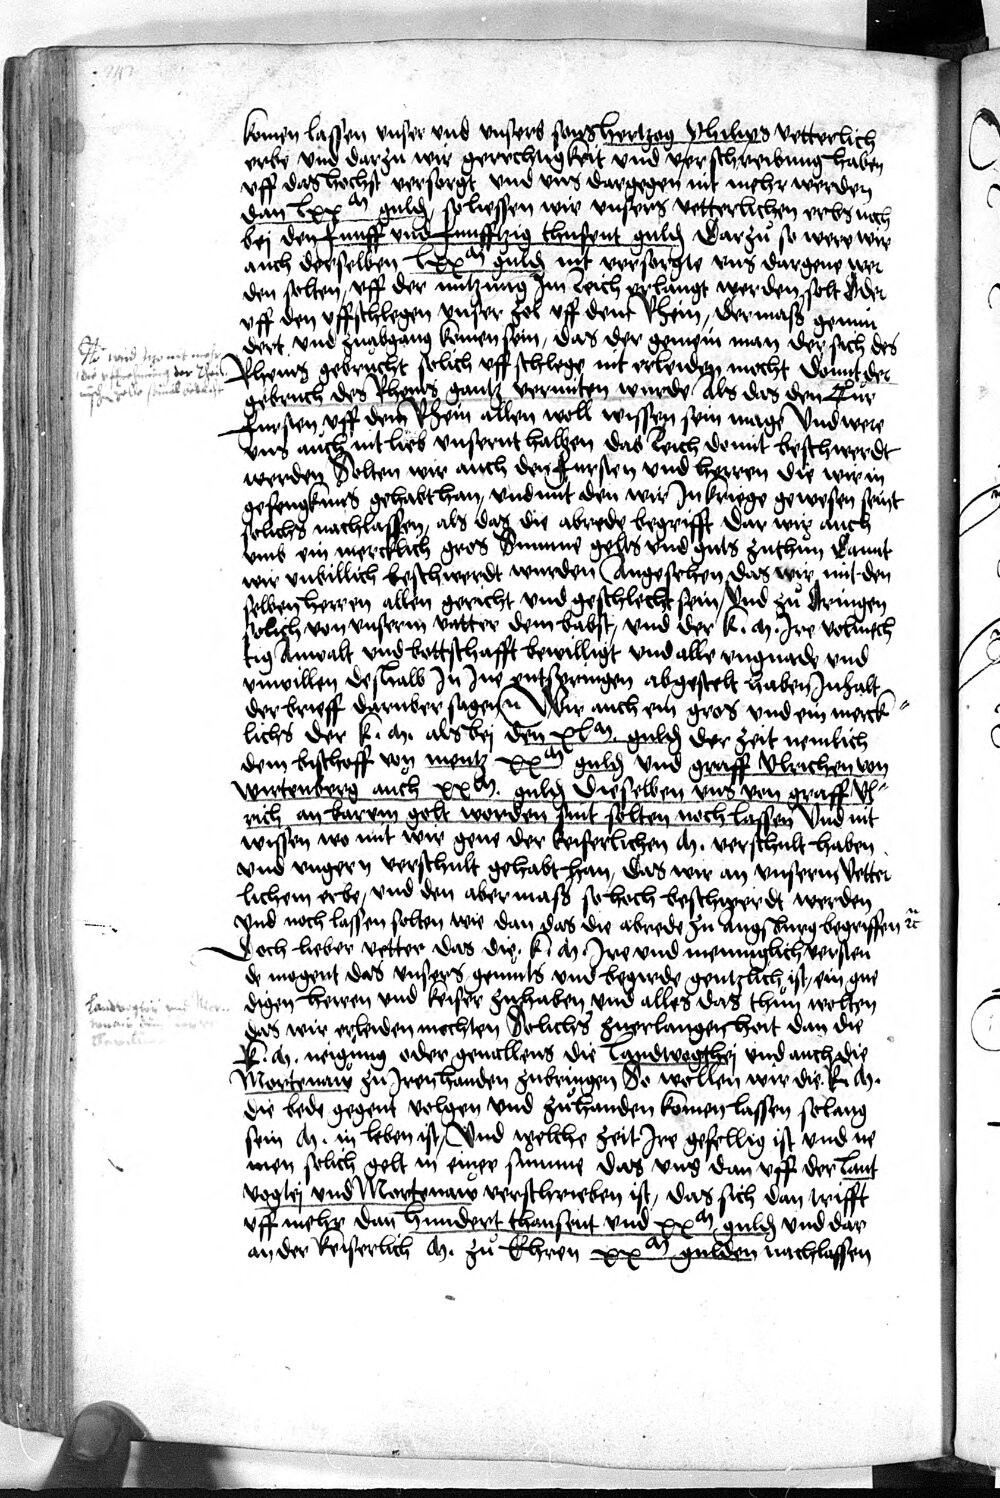 komen lassen vnser vnd vnsers sons hertzog Philips vetterlich
erbe vnd darzu wir gerechtigkeit vnd verschreibung haben
vff das hochst versorgt vnd vns dargegen nit mehr werden
dan lxx m guld, so liessen wir vnsers vetterlichen erbs noch
bej den funff vnd funfftzig thusent guld Darzu so were wir
auch derselben lxx m guld nit versorgte vns dargene wer
den solten, vff der nutzung Im Reich erlangt werden solt Oder
vff den vffschlegen vnser zol vff dem Rhein, dermass gemin
dert vnd zu abgang komen sein, das der gemein man der sich des
Rheins gebrucht solich vffschlege nit erleiden mocht Domit der
gebruch des Rheins gantz vermiten wurde Als das den Kur
fursten vff dem Rhein allen woll wissen sein mage Vnd were
vns auch nit lieb vnsernthalben das Reich domit beschwerdt
werden Solten wir auch den fursten vnd herren die wir in
gefengknus gehabt han, vnd mit den wir In kriege gewesen seint
solichs nachlassen, als das die abrede begrifft Dar wir auch
vmb ein mercklich gros Summe gelts vnd guts zuthun Damit
wir vnbillich beschwerdt wurden Angesehen das wir mit den
selben herren allen gericht vnd geschlecht sein, Vnd zu Dringen
solich von vnserm vatter dem babst, vnd der K. M. Ire volmech
tig Anwalt vnd bottschafft bewilligt vnd alle vngnade vnd
vnwillen deshalb In Ine entspringen abgestelt haben Inhalt
der brieff daruber sagen Wir auch ein gros vnd ein merck
lichs der K. M. als bej den xl m. guld der zeit nemlich
dem bischoff von mentz xx m guld vnd graff Vlrichen von
wirtenberg auch xx m. guld Dieselben vns von graff Vl
rich an barem gelt worden sint solten noch lassen Vnd nit
wissen wo mit wir gene der keiserlichen M. verschult haben
vnd vngern verschult gehabt han, das wir an vnserm Vetter
lichem erbe, vnd den abermass so hoch beschwerdt werden
vnd noch lassen solten wie dan das die abrede zu Augspurg begriffen rc
Doch lieber vetter das die. K. M. Ire vnd menniglich versten
de mogent das vnsers gemuts vnd begirde gentzlich ist, ein gne
digen herren vnd keiser zuhaben, vnd alles das thun wolten
das wir erleiden mochten Solichs zuerlangen hat dan die
K. M. neigung oder geuallens die Landvogthej vnd auch die
Mortenaw zu Iren handen zubringen So wollen wir die. K. M.
die bede gegent volgen vnd zuhanden komen lassen solang
sein M. in leben ist, Vnd welche zeit Ire gefellig ist vnd ne
men solich gelt in einer summe das vns dan vff der Lant
vogtej vnd Mortenaw verschrieben ist, das sich dan trifft
vff mehr dan hundert thausent vnd xx m guld vnd dar
an der keiserlich M. zu Ehren xx m gulden nachlassen